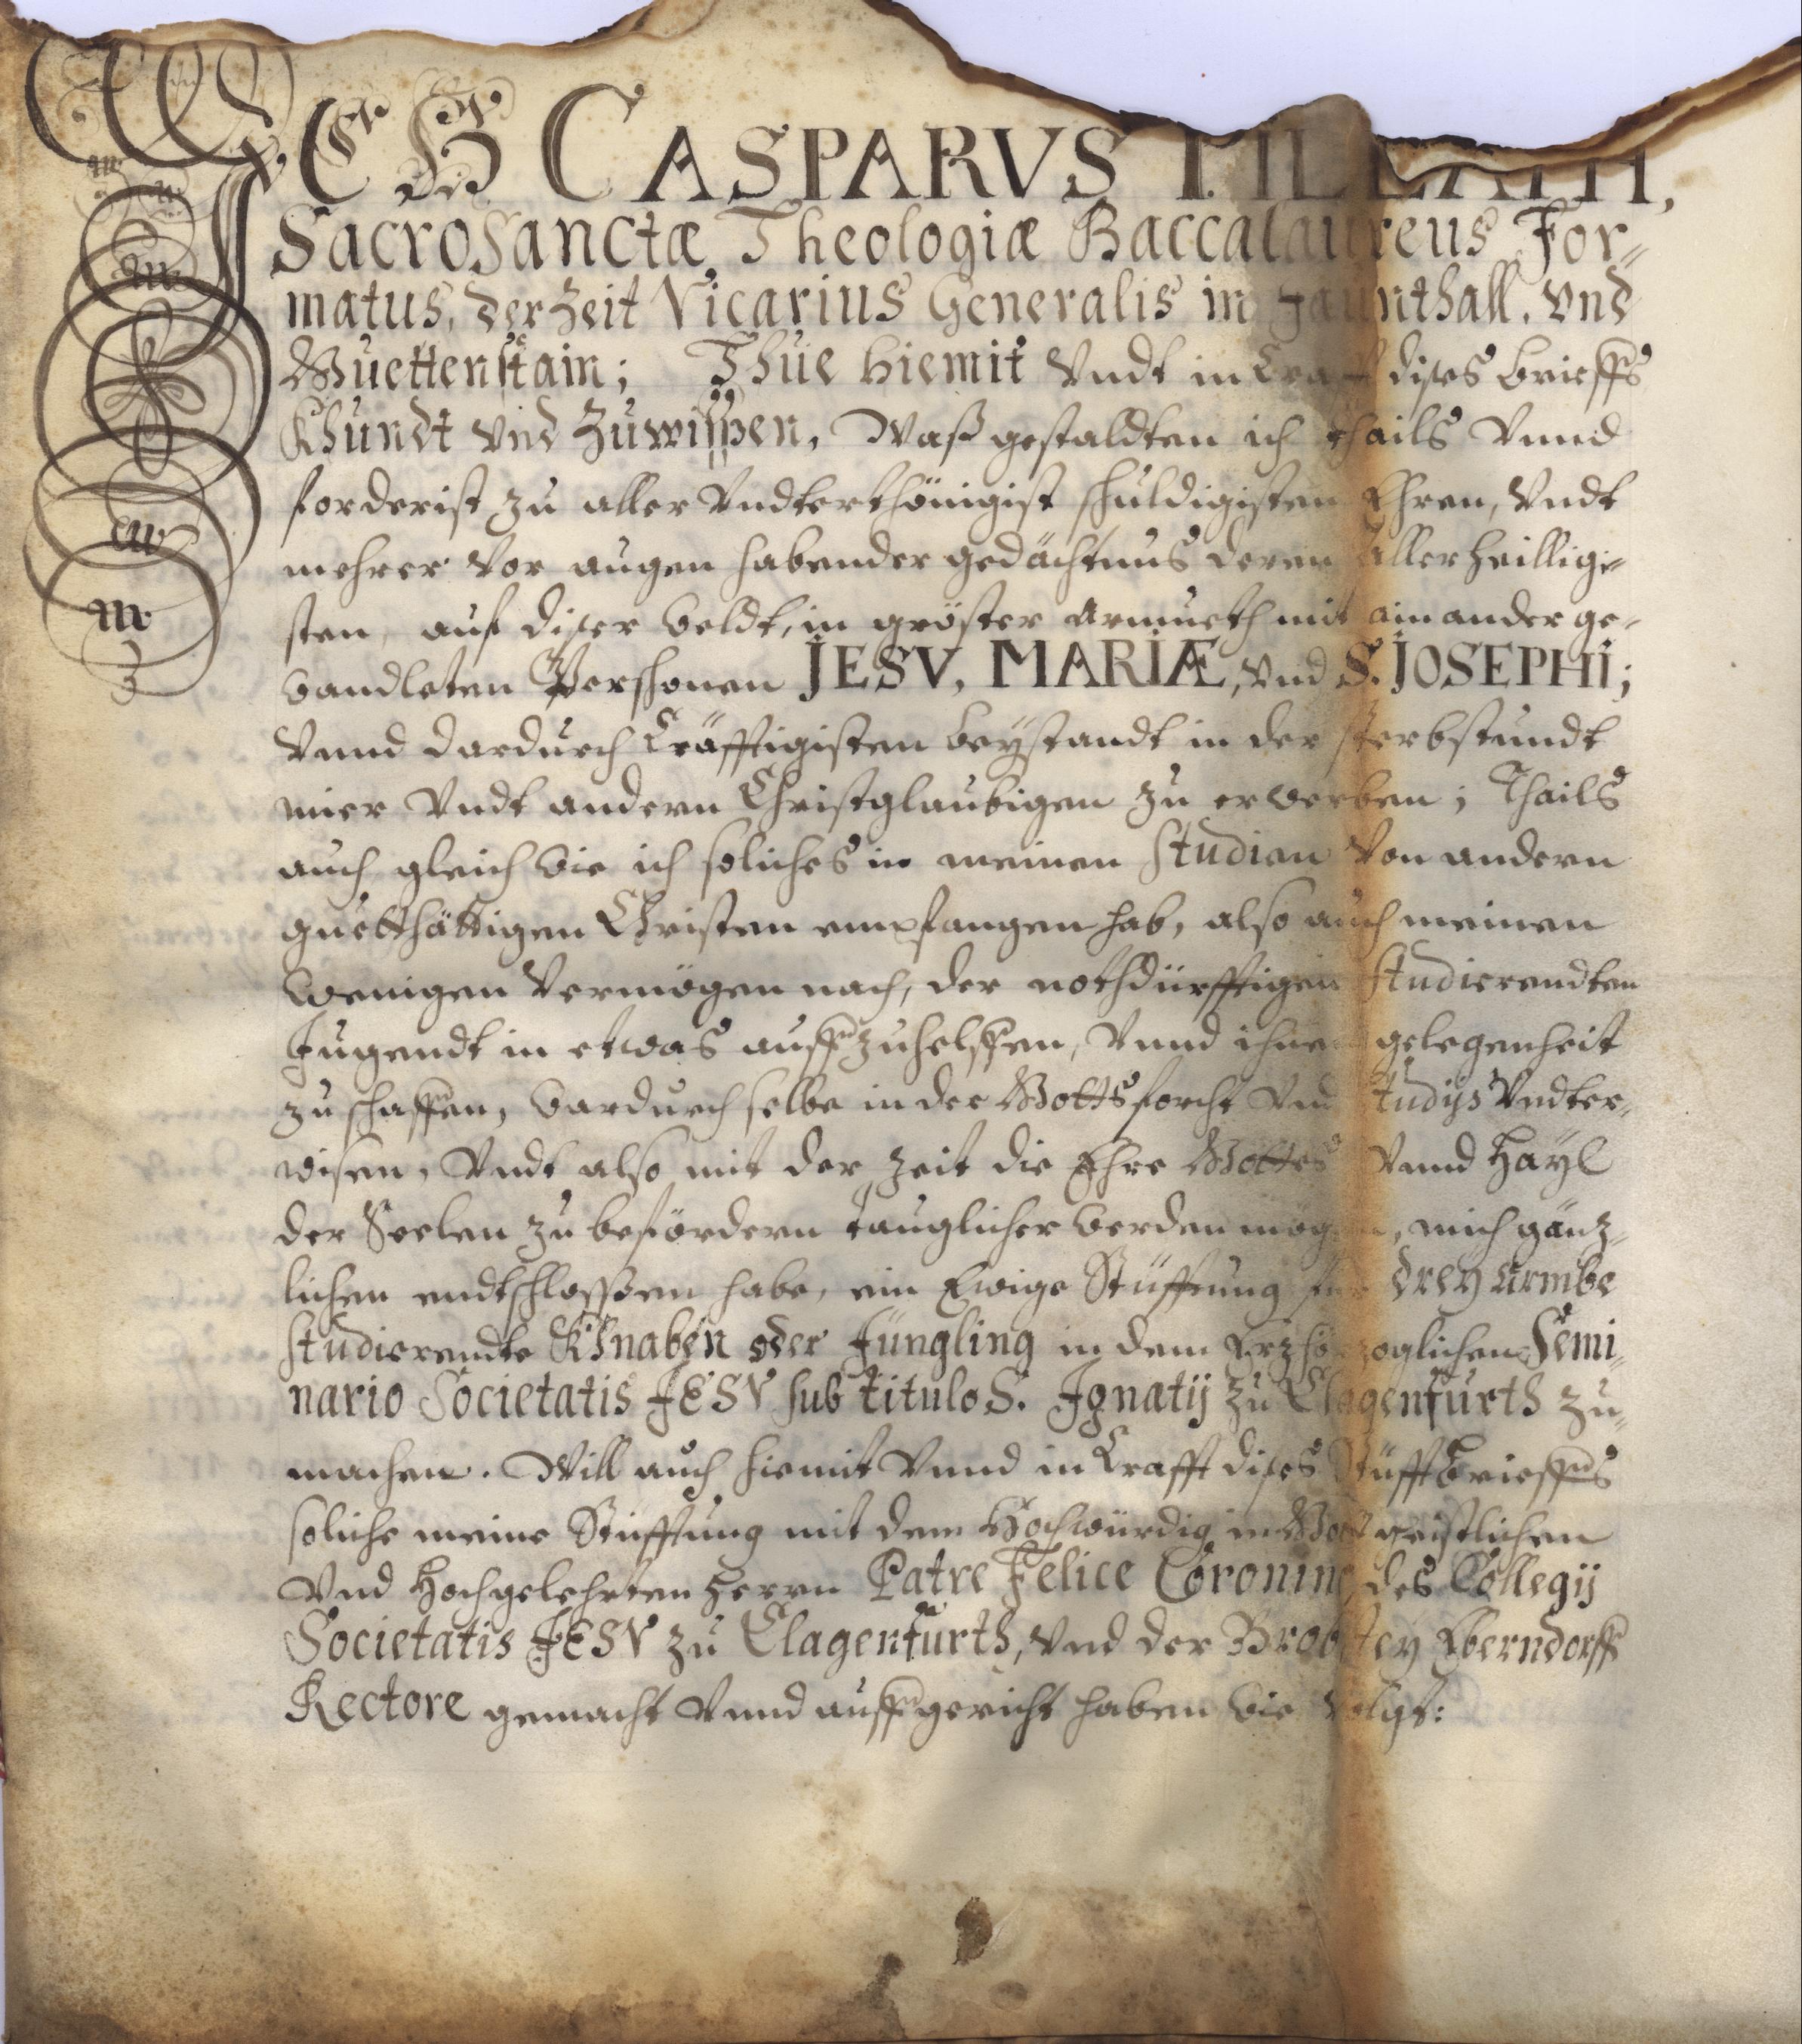 ICH CASPARVS
Sacrosanctæ Theologiæ Baccalaureus For-
matus, der Zeit Vicarius Generalis in Jaunthall, vnd
Guettenstain; Thue hiemit Vndt in Crafft dises brieffs
Khundt vnd Zuwissen, Waß gestaldten ich thails Vnnd
forderist zu aller Vndterthönigist schuldigisten Ehren, Vndt
mehrer Vor augen habender gedächtnus deren Allerheillige-
sten, auf diser weldt, in gröster Armueth mit ainander ge-
wandleten Pershonen JESV, MARIÆ, vnd S. JOSEPHI;
Vnnd dardurch Cräfftigisten beÿstandt in der sterbstundt
mier Vndt andern Christglaubigen zu erwerben; Thails
auch gleich wie ich soliches in meinen Studien Von andern
guetthättigen Christen empfangen hab, also auch meinen
wenigen Vermögen nach, der nothdürfftigen Studierendten
Jugendt in etwas auffzuhelffen, Vnnd ihnen gelegenheit
zuschaffen, wardurch selbe in der Gottsforcht Vnd Studijs Vndter-
wisen, Vndt also mit der Zeit die Ehre Gottes Vnnd Haÿl
der Seelen zu befördern tauglicher werden mögen, mich gänz-
lichen endtschlossen habe, ein Ewige Stüfftung für dreÿ Armbe
Studierendte Khnaben oder Jüngling in dem Erzhörzoglichen Semi-
nario Societatis JESV sub titulo S. Ignatij zu Clagenfurth zu-
machen. Will auch hiemit Vnnd in Crafft dises Stüfftbrieffs
soliche meine Stüfftung mit dem Hochwürdig in Gott geistlichen
Vnd Hochgelehrten Herrn Patre Felice Coronino, des Collegij
Societatis JESV zu Clagenfurth, vnd der Brobsteÿ Eberndorff
Rectore gemacht Vnnd auffgericht haben wie Volgt: